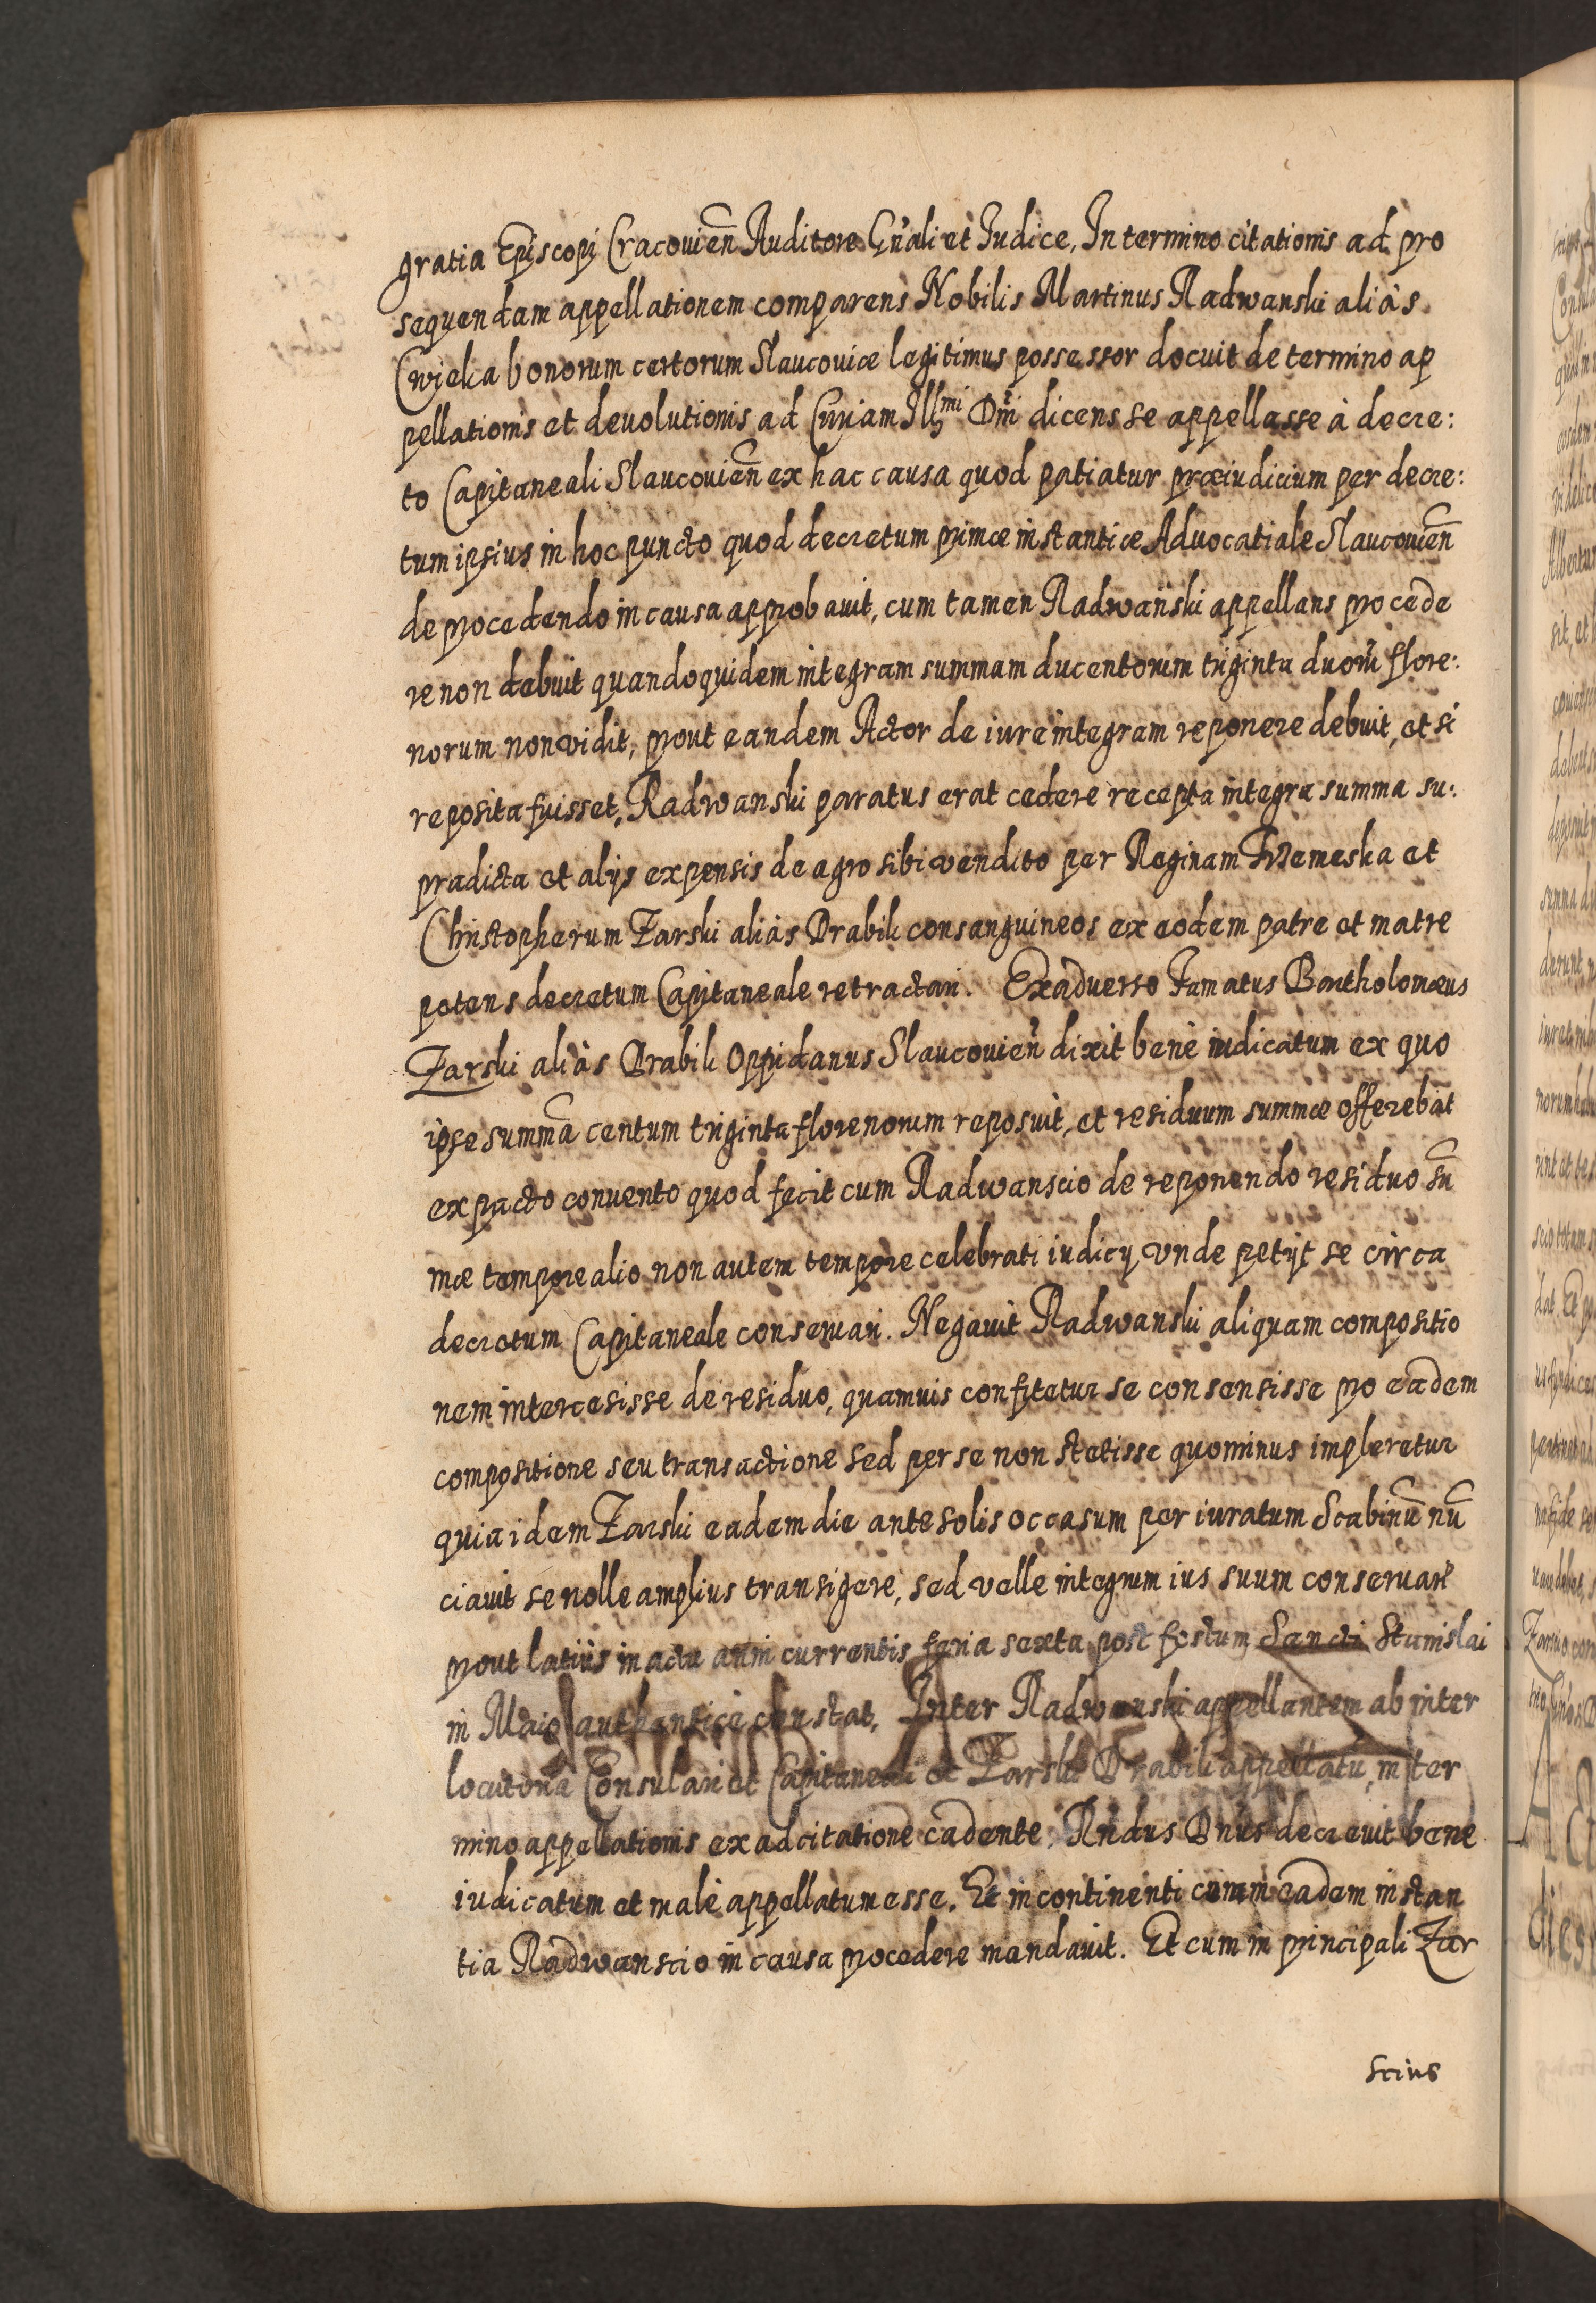 gratia Epìscopi Cracouien̄ Auditore Gn̄ali et Iudice, In termino citationis ad pro
sequendam appellationem comparens Nobilis Martinus Radwanski aliàs
Cwieka bonorum certorum Slaucouiæ legitimus possessor docuit de termino ap
pellationis et deuolutionis ad Curiam Illmi Dn̄i dicens se appellasse à decre:
to Capitaneali Slaucouien̄ ex hac causa quod patiatur præiudicium per decre:
tum ipsius in hoc puncto quod decretum primæ instantiæ Aduocatiale Slaucouien̄
de procedendo in causa approbauit, cum tamen Radwanski appellans procede
re non debuit quandoquidem integram summam ducentorum triginta duorū flore:
norum non vidit, prout eandem Actor de iure integram reponere debuit, et si
reposita fuisset, Radwanski paratus erat cedere recepta integra summa su:
pradicta et alijs expensis de agro sibi vendito per Reginam Trzemeska et
Christopherum Zarski aliàs Drabik consanguineos ex eodem patre et matre
petens decretum Capitaneale retractari. Ex aduerso Famatus Bartholomæus
Zarski aliàs Drabik Oppidanus Slaucouien̄ dixit benè iudicatum ex quo
ipse summā centum triginta florenorum reposuit, et residuum summæ offerebat
ex pacto conuento quod fecit cum Radwanscio de reponendo residuo sū
mæ tempore alio non autem tempore celebrati iudicij vnde petijt se circa
decretum Capitaneale conseruari. Negauit Radwanski aliquam compositio
nem intercesisse de residuo, quamuis confitetur se consensisse pro eadem
compositione seu transactione sed per se non stetisse quominus impleretur
quia idem Zarski eadem die ante solis occasum per iuratum Scabinū nū
ciauit se nolle amplius transigere, sed velle integrum ius suum conseruare
prout latiùs in actu anni currentis feria sexta post festum Sancti Stanislai
in Maio authenticè constat, Inter Radwanski appellantem ab inter
locutoria Consulari et Capitaneali et Zarski Drabik appellatū, in ter
mino appellationis ex adcitatione cadente, Rn̄dus Dn̄us decreuit bene
iudicatum et malè appellatum esse. Et in continenti eadem instan
tia Radwanscio in causa procedere mandauit. Et cum in principali Zar
scius